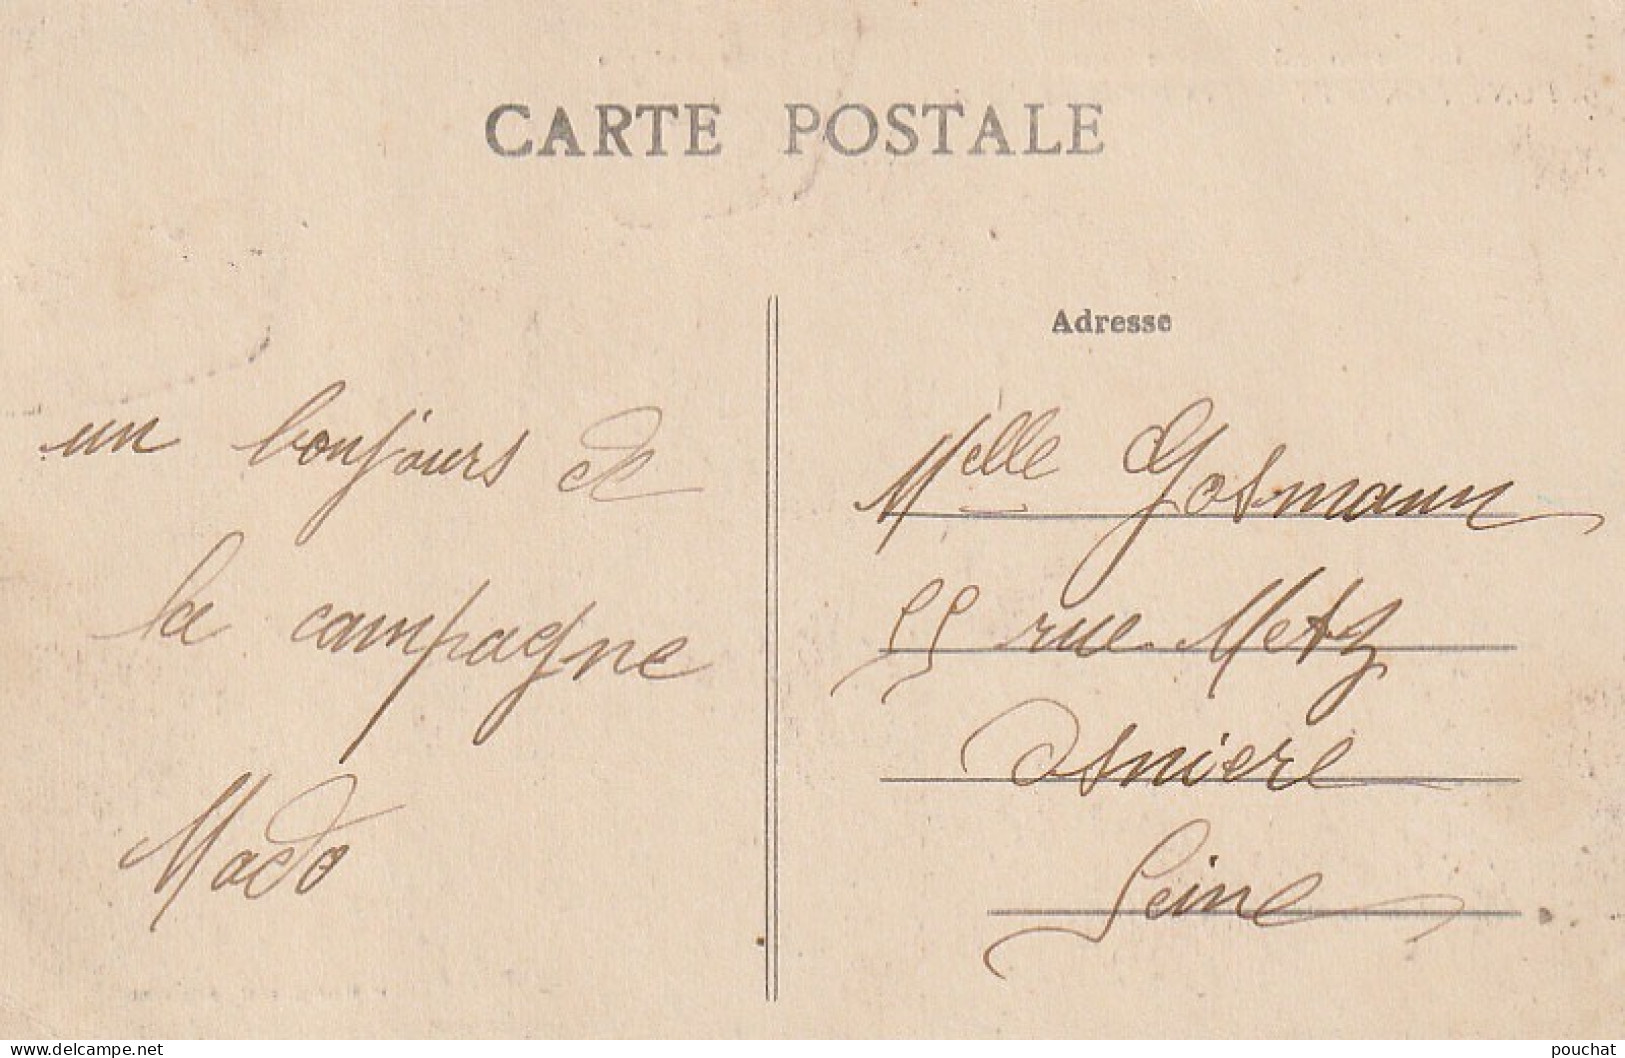 CARTE POSTALE
Adresse
un bonjours de
la campagne
Mado
Melle Gosmann
55 rue Metz
Asniere
Seine
www.delcampe.net
pouchat